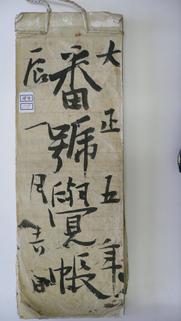 大正五年
番號覺帳
辰一月吉日